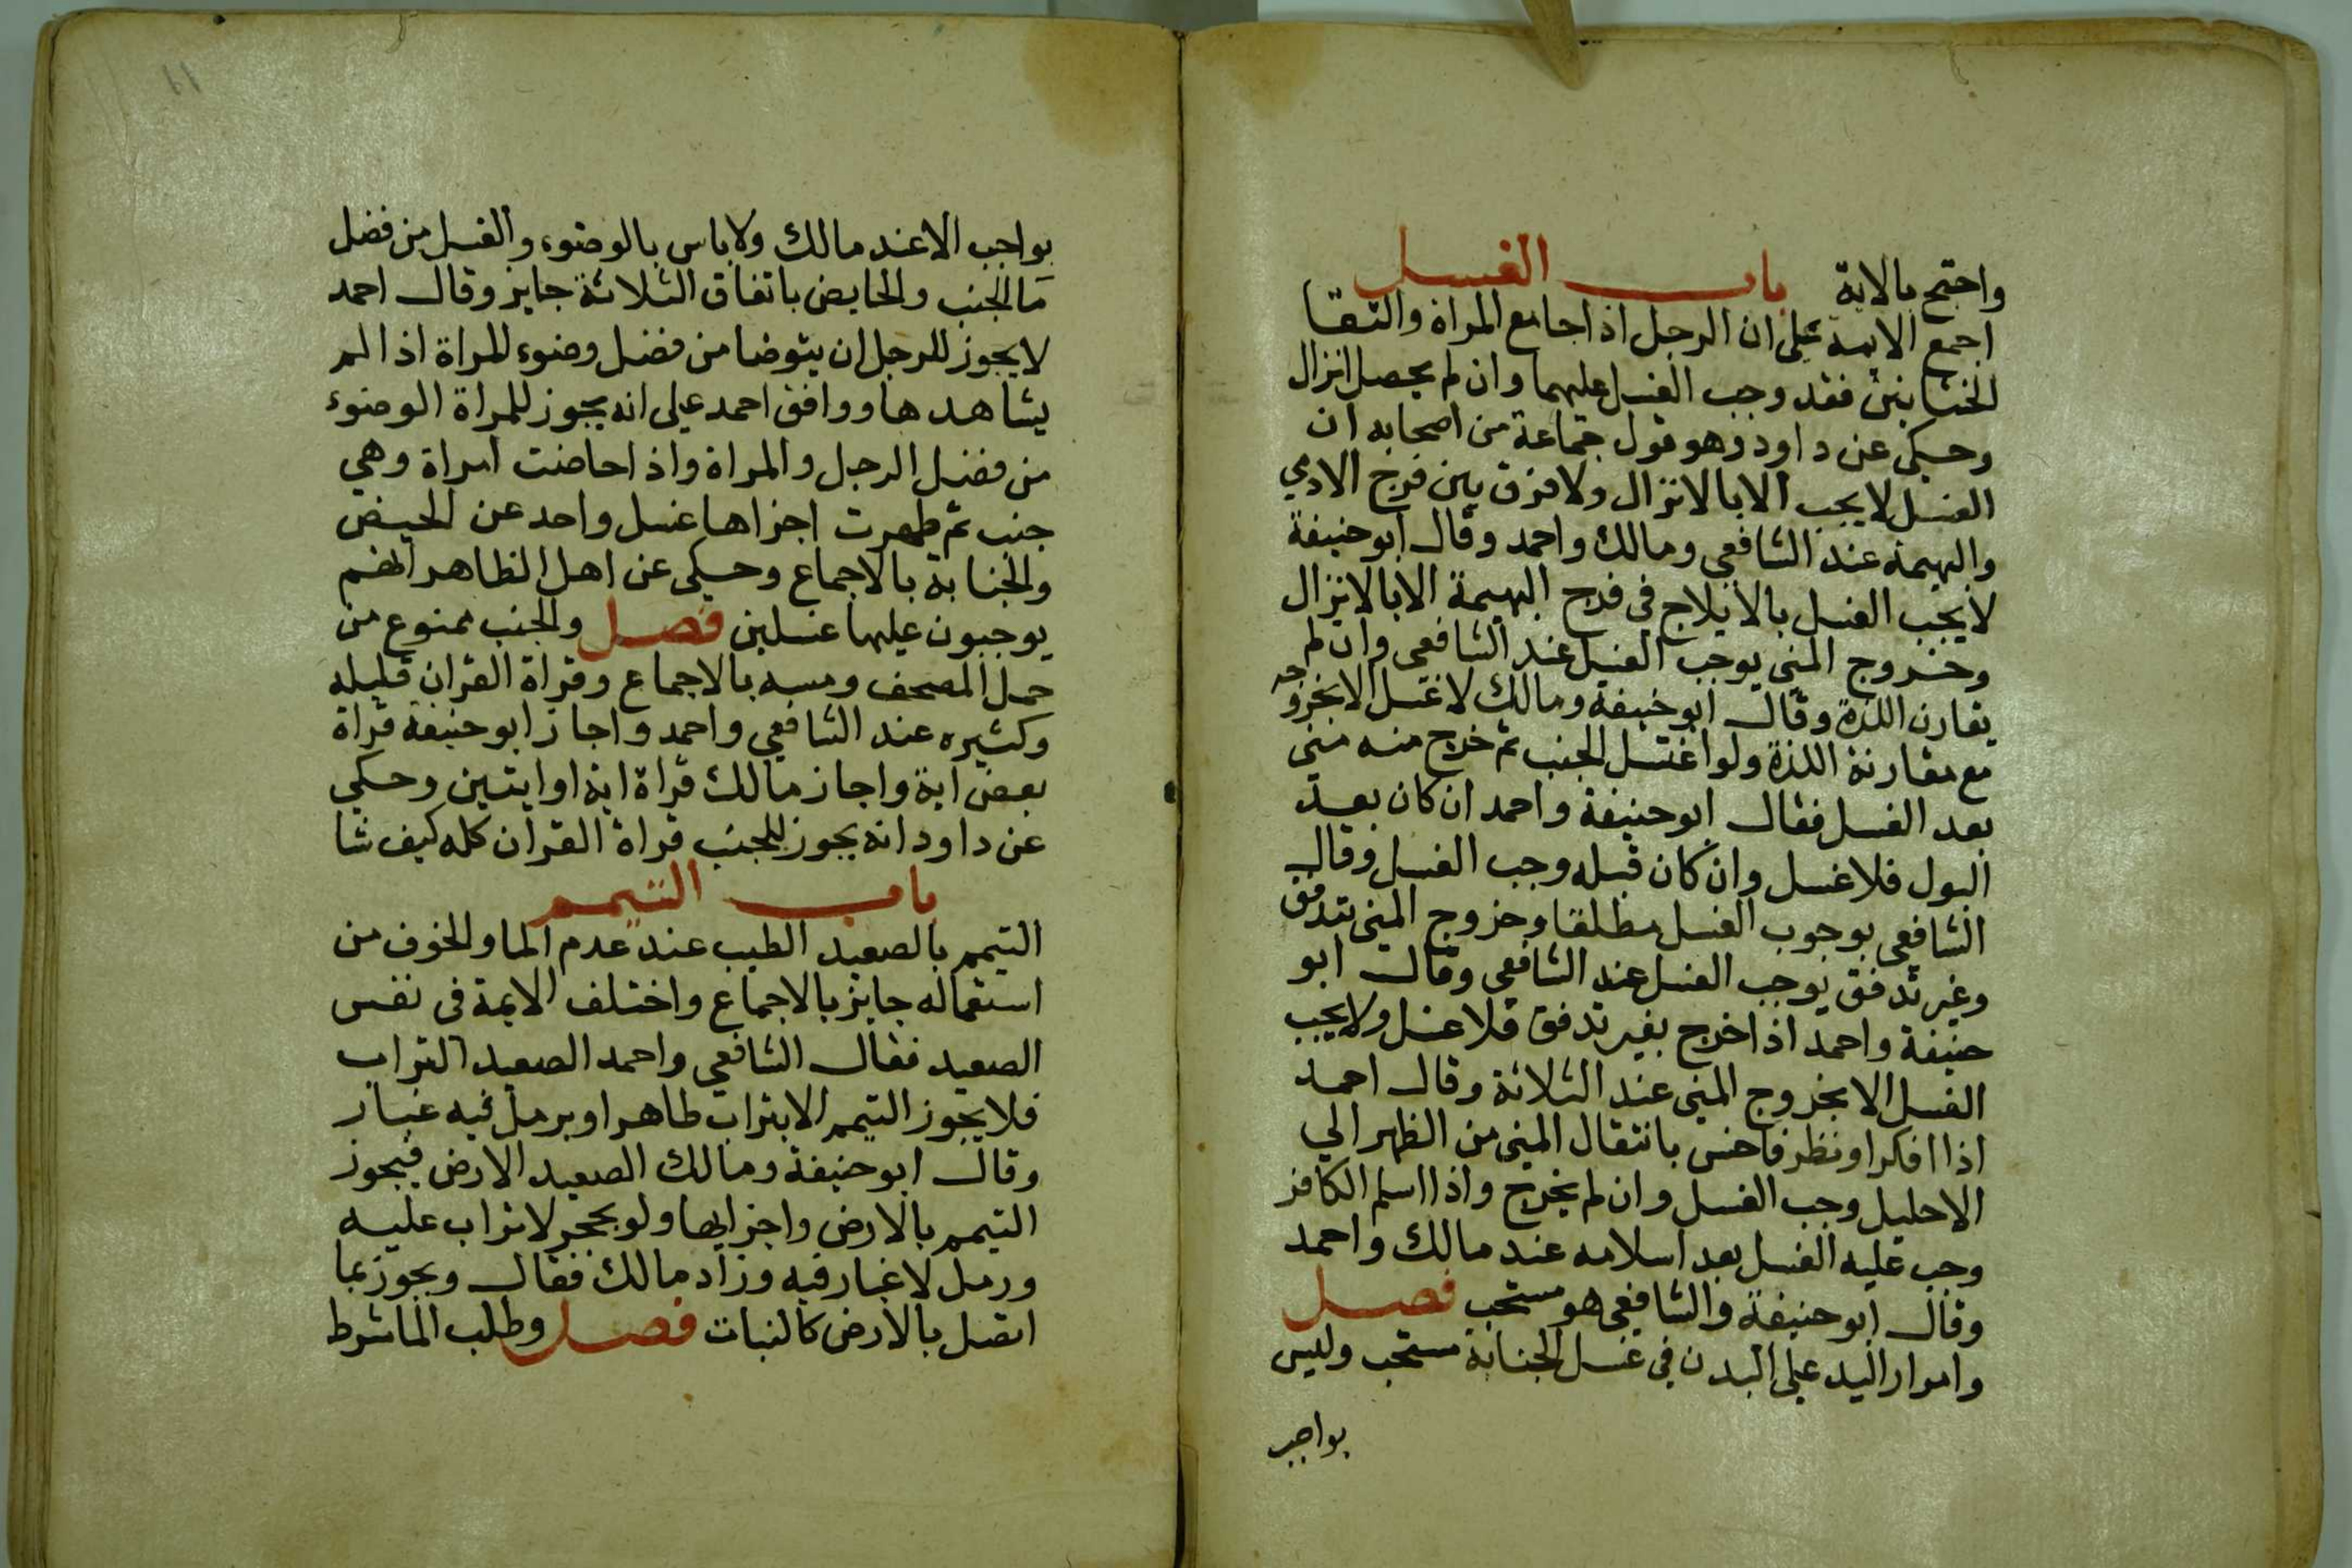 واحتج بالاية باب الغسل
اجمع الايمة على ان الرجل اذا جامع المراة والتقا
الختانين فقد وجب الغسل عليهما وان لم يحصل انزال
وحكي عن داود وهو قول جماعة من اصحابه ان
الغسل لا يجب الا بالانزال ولا فرق بين فرج الادمي
والبهيمة عند الشافعي ومالك واحمد وقال ابو حنيفة
لا يجب الغسل بالايلاج في فرج البهيمة الا بالانزال
وخروج المني يوجب الغسل عند الشافعي وان لم
يقارن اللذة وقال ابو حنيفة ومالك لا غسل الا بخروجه
مع مقارنة اللذة ولو اغتسل الجنب ثم خرج منه مني
بعد الغسل فقال ابو حنيفة واحمد ان كان بعد
البول فلا غسل وان كان قبله وجب الغسل وقال
الشافعي بوجوب الغسل مطلقا وخروج المني بتدفق
وغير تدفق يوجب الغسل عند الشافعي وقال ابو
حنيفة واحمد اذا خرج بغير تدفق فلا غسل ولا يجب
الغسل الا بخروج المني عند الثلاثة وقال احمد
اذا افكر او نظر فاحس بانتقال المني من الظهر الي
الاحليل وجب الغسل وان لم يخرج واذا اسلم الكافر
وجب عليه الغسل بعد اسلامه عند مالك واحمد
وقال ابو حنيفة والشافعي هو مستحب فصل
وامرار اليد على البدن في غسل الجنابة مستحب وليس
بواجب
بواجب الا عند مالك ولا باس بالوضوء والغسل من فضل
مآ الجنب والحايض باتفاق الثلاثة جايز وقال احمد
لا يجوز للرجل ان يتوضا من فضل وضوء المراة اذا لم
يشاهدها ووافق احمد على انه يجوز للمراة الوضوء
من فضل الرجل والمراة واذا حاضت امراة وهي
جنب ثم طهرت اجزاها غسل واحد عن الحيض
والجنابة بالاجماع وحكي عن اهل الظاهر انهم
يوجبون عليها غسلين فصل والجنب ممنوع من
حمل المصحف ومسه بالاجماع وقراة القران قليله
وكثيره عند الشافعي واحمد واجاز ابو حنيفة قراة
بعض اية واجاز مالك قراة اية او ايتين وحكي
عن داود انه يجوز للجنب قراة القران كله كيف شا
باب التيمم
التيمم بالصعيد الطيب عند عدم الما والخوف من
استعماله جايز بالاجماع واختلف الايمة في نفس
الصعيد فقال الشافعي واحمد الصعيد التراب
فلا يجوز التيمم الا بتراب طاهر او برمل فيه غبار
وقال ابو حنيفة ومالك الصعيد الارض فيجوز
التيمم بالارض واجزايها ولو بحجر لا تراب عليه
ورمل لا غبار فيه وزاد مالك فقال ويجوز بما
اتصل بالارض كالنبات فصل وطلب الما شرط